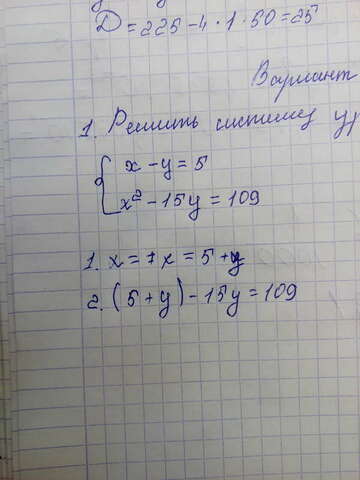 D = 225 - 4 · 1 · 50 = 25
Вариант
1. Решить систему ур
{ x - y = 5
x² - 15y = 109
1. x = 7x = 5 + y
2. (5 + y) - 15y = 109